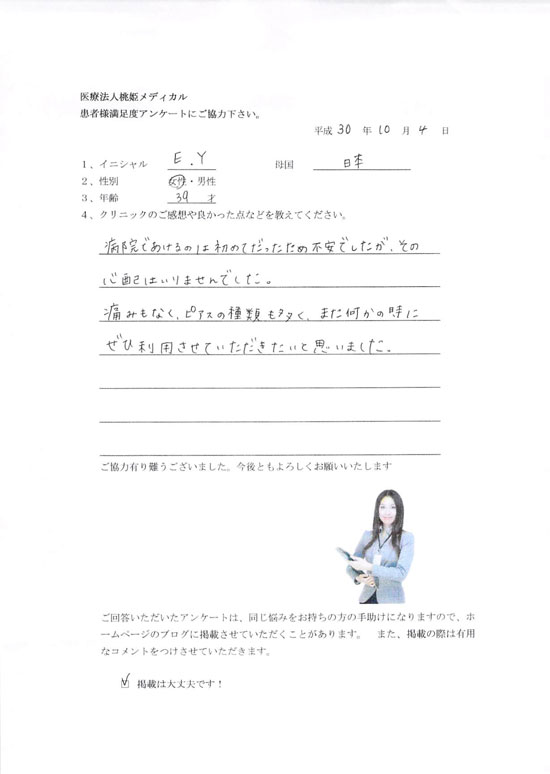 医療法人桃姫メディカル
患者様満足度アンケートにご協力下さい。
平成 30 年 10 月 4 日
1、イニシャル E.Y 母国 日本
2、性別 女性・男性
3、年齢 39 才
4、クリニックのご感想や良かった点などを教えてください。
病院であけるのは初めてだったため不安でしたが、その
心配はいりませんでした。
痛みもなく、ピアスの種類も多く、また何かの時に
ぜひ利用させていただきたいと思いました。
ご協力有り難うございました。今後ともよろしくお願いいたします
ご回答いただいたアンケートは、同じ悩みをお持ちの方の手助けになりますので、ホ
ームページのブログに掲載させていただくことがあります。 また、掲載の際は有用
なコメントをつけさせていただきます。
☑ 掲載は大丈夫です！